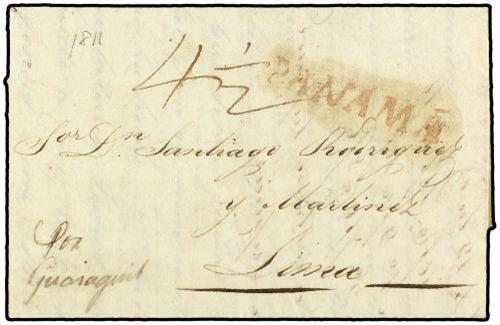 1811
4½
PANAMÁ
Sor Dn Santiago Rodriguez
y Martinez
Lima
Por
Guaiaquil